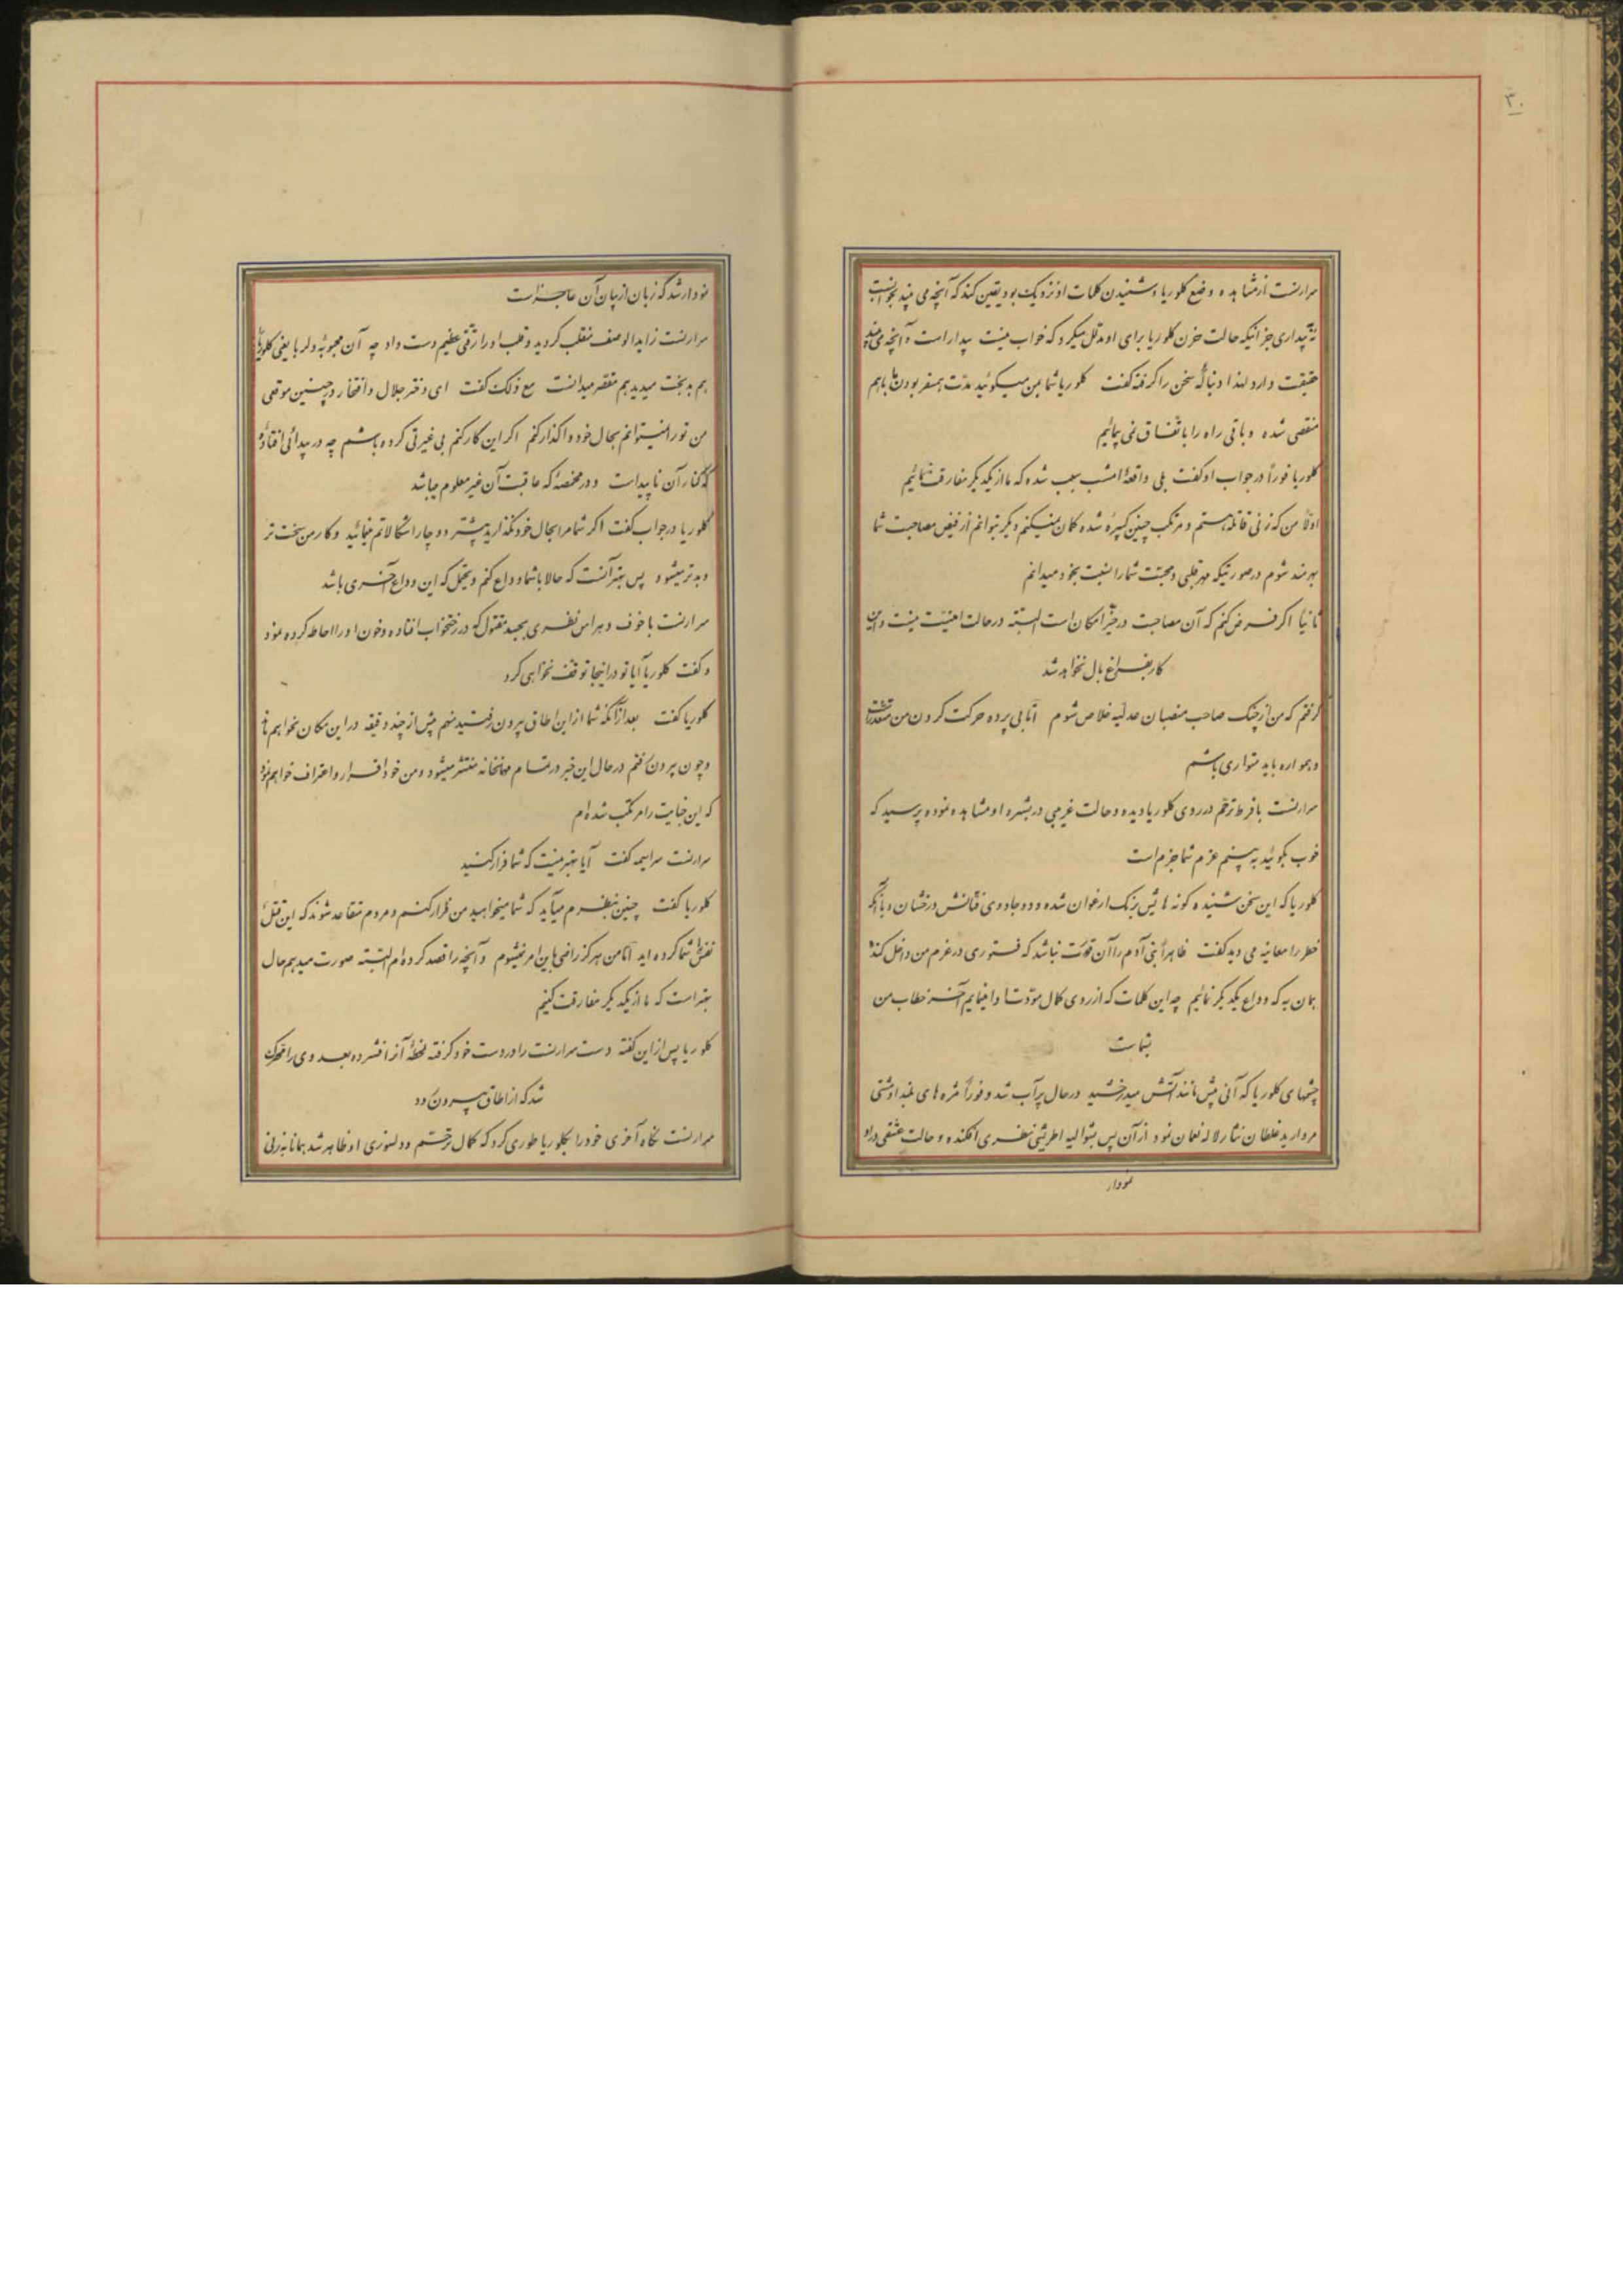 ۳۰
سرارنست از مشاهده وضع کلوریا و شنیدن کلمات او نزدیک بود یقین کند که آنچه می بیند بخوابست
نه بیداری جز اینکه حالت حزن کلوریا برای او مدلل میکرد که خواب نیست بیدار است و آنچه می بیند
حقیقت دارد لهذا دنباله سخن را گرفته گفت کلوریا شما بمن میگوئید مدت همسفر بودن ما باهم
منقضی شده و باقی راه را باتفاق نمی پیمائیم
کلوریا فوراً در جواب او گفت بلی واقعهٔ امشب سبب شده که ما از یکدیگر مفارقت نمائیم
اولاً من که زنی قاتله هستم و مرتکب چنین کبیره شده گمان نمیکنم دیگر بتوانم از فیض مصاحبت شما
بهره‌مند شوم در صورتیکه مهر قلبی و محبت شما را نسبت بخود میدانم
ثانیاً اگر فرض کنم که آن مصاحبت در حیّز امکان است البته در حالت امنیت نیست و این
کار بفراغ بال نخواهد شد
گرفتم که من از چنگ صاحب منصبان عدلیه خلاص شوم امّا بی پرده حرکت کردن من متعذر است
و همواره باید متواری باشم
سرارنست با فرط ترحم در روی کلوریا دیده و حالت غریبی در بشره او مشاهده نموده پرسید که
خوب بگوئید به بینم عزم شما جزم است
کلوریا که این سخن شنیده گونه هایش برنگ ارغوان شده و دو جادوی فتّانش درخشان و با آنکه
خطر را معاینه می دید گفت ظاهراً بنی آدم را آن قوّت نباشد که فتوری در عزم من داخل کند
همان به که وداع یکدیگر نمائیم چه این کلمات که از روی کمال مودّت ادا مینمایم آخر خطاب من
بشماست
چشمهای کلوریا که آنی پیش مانند آتش میدرخشید در حال پرآب شد و فوراً مژه های بلند او مشتی
مروارید غلطان نثار لاله نعمان نمود از آن پس بشوالیه اطریشی نظری افکنده و حالت عشقی در او
نمودار
نمودار شد که زبان از بیان آن عاجز است
سرارنست زاید الوصف منقلب گردید و قلب او را رقّتی عظیم دست داد چه آن محبوبهٔ دلربا یعنی کلوریا را
هم بدبخت میدید هم مقصر میدانست مع ذلک گفت ای دختر جلال و افتخار در چنین موقعی
من تو را نمیتوانم بحال خود واگذارم اگر این کار کنم بی غیرتی کرده باشم چه در بیدائی افتادهٔ
که کنار آن ناپیداست و در مخمصهٔ که عاقبت آن غیر معلوم میباشد
کلوریا در جواب گفت اگر شما مرا بحال خود نگذارید بیشتر دوچار اشکالاتم مینمائید و کار من سخت تر
و بدتر میشود پس بهتر آنست که حالا با شما وداع کنم و یحتمل که این وداع آخری باشد
سرارنست با خوف و هراس نظری بجسد مقتول که در رختخواب افتاده و خون او را احاطه کرده نمود
و گفت کلوریا آیا تو در اینجا توقف نخواهی کرد
کلوریا گفت بعد از آنکه شما از این اطاق بیرون رفتید منهم بیش از چند دقیقه در این مکان نخواهم ماند
و چون بیرون رفتم در حال این خبر در تمام مهمانخانه منتشر میشود و من خود اقرار و اعتراف خواهم نمود
که این جنایت را مرتکب شده‌ام
سرارنست سراسیمه گفت آیا بهتر نیست که شما فرار کنید
کلوریا گفت چنین بنظرم میآید که شما میخواهید من فرار کنم و مردم متقاعد شوند که این قتل
نفس را شما کرده اید امّا من هرگز راضی باین امر نمیشوم و آنچه را قصد کرده‌ام البته صورت میدهم حال
بهتر است که ما از یکدیگر مفارقت کنیم
کلوریا پس از این گفته دست سرارنست را در دست خود گرفته لحظهٔ آنرا فشرده بعد وی را محرک
شد که از اطاق بیرون رود
سرارنست نگاه آخری خود را بکلوریا طوری کرد که کمال ترحّم و دلسوزی او ظاهر شد همانا نه زنی